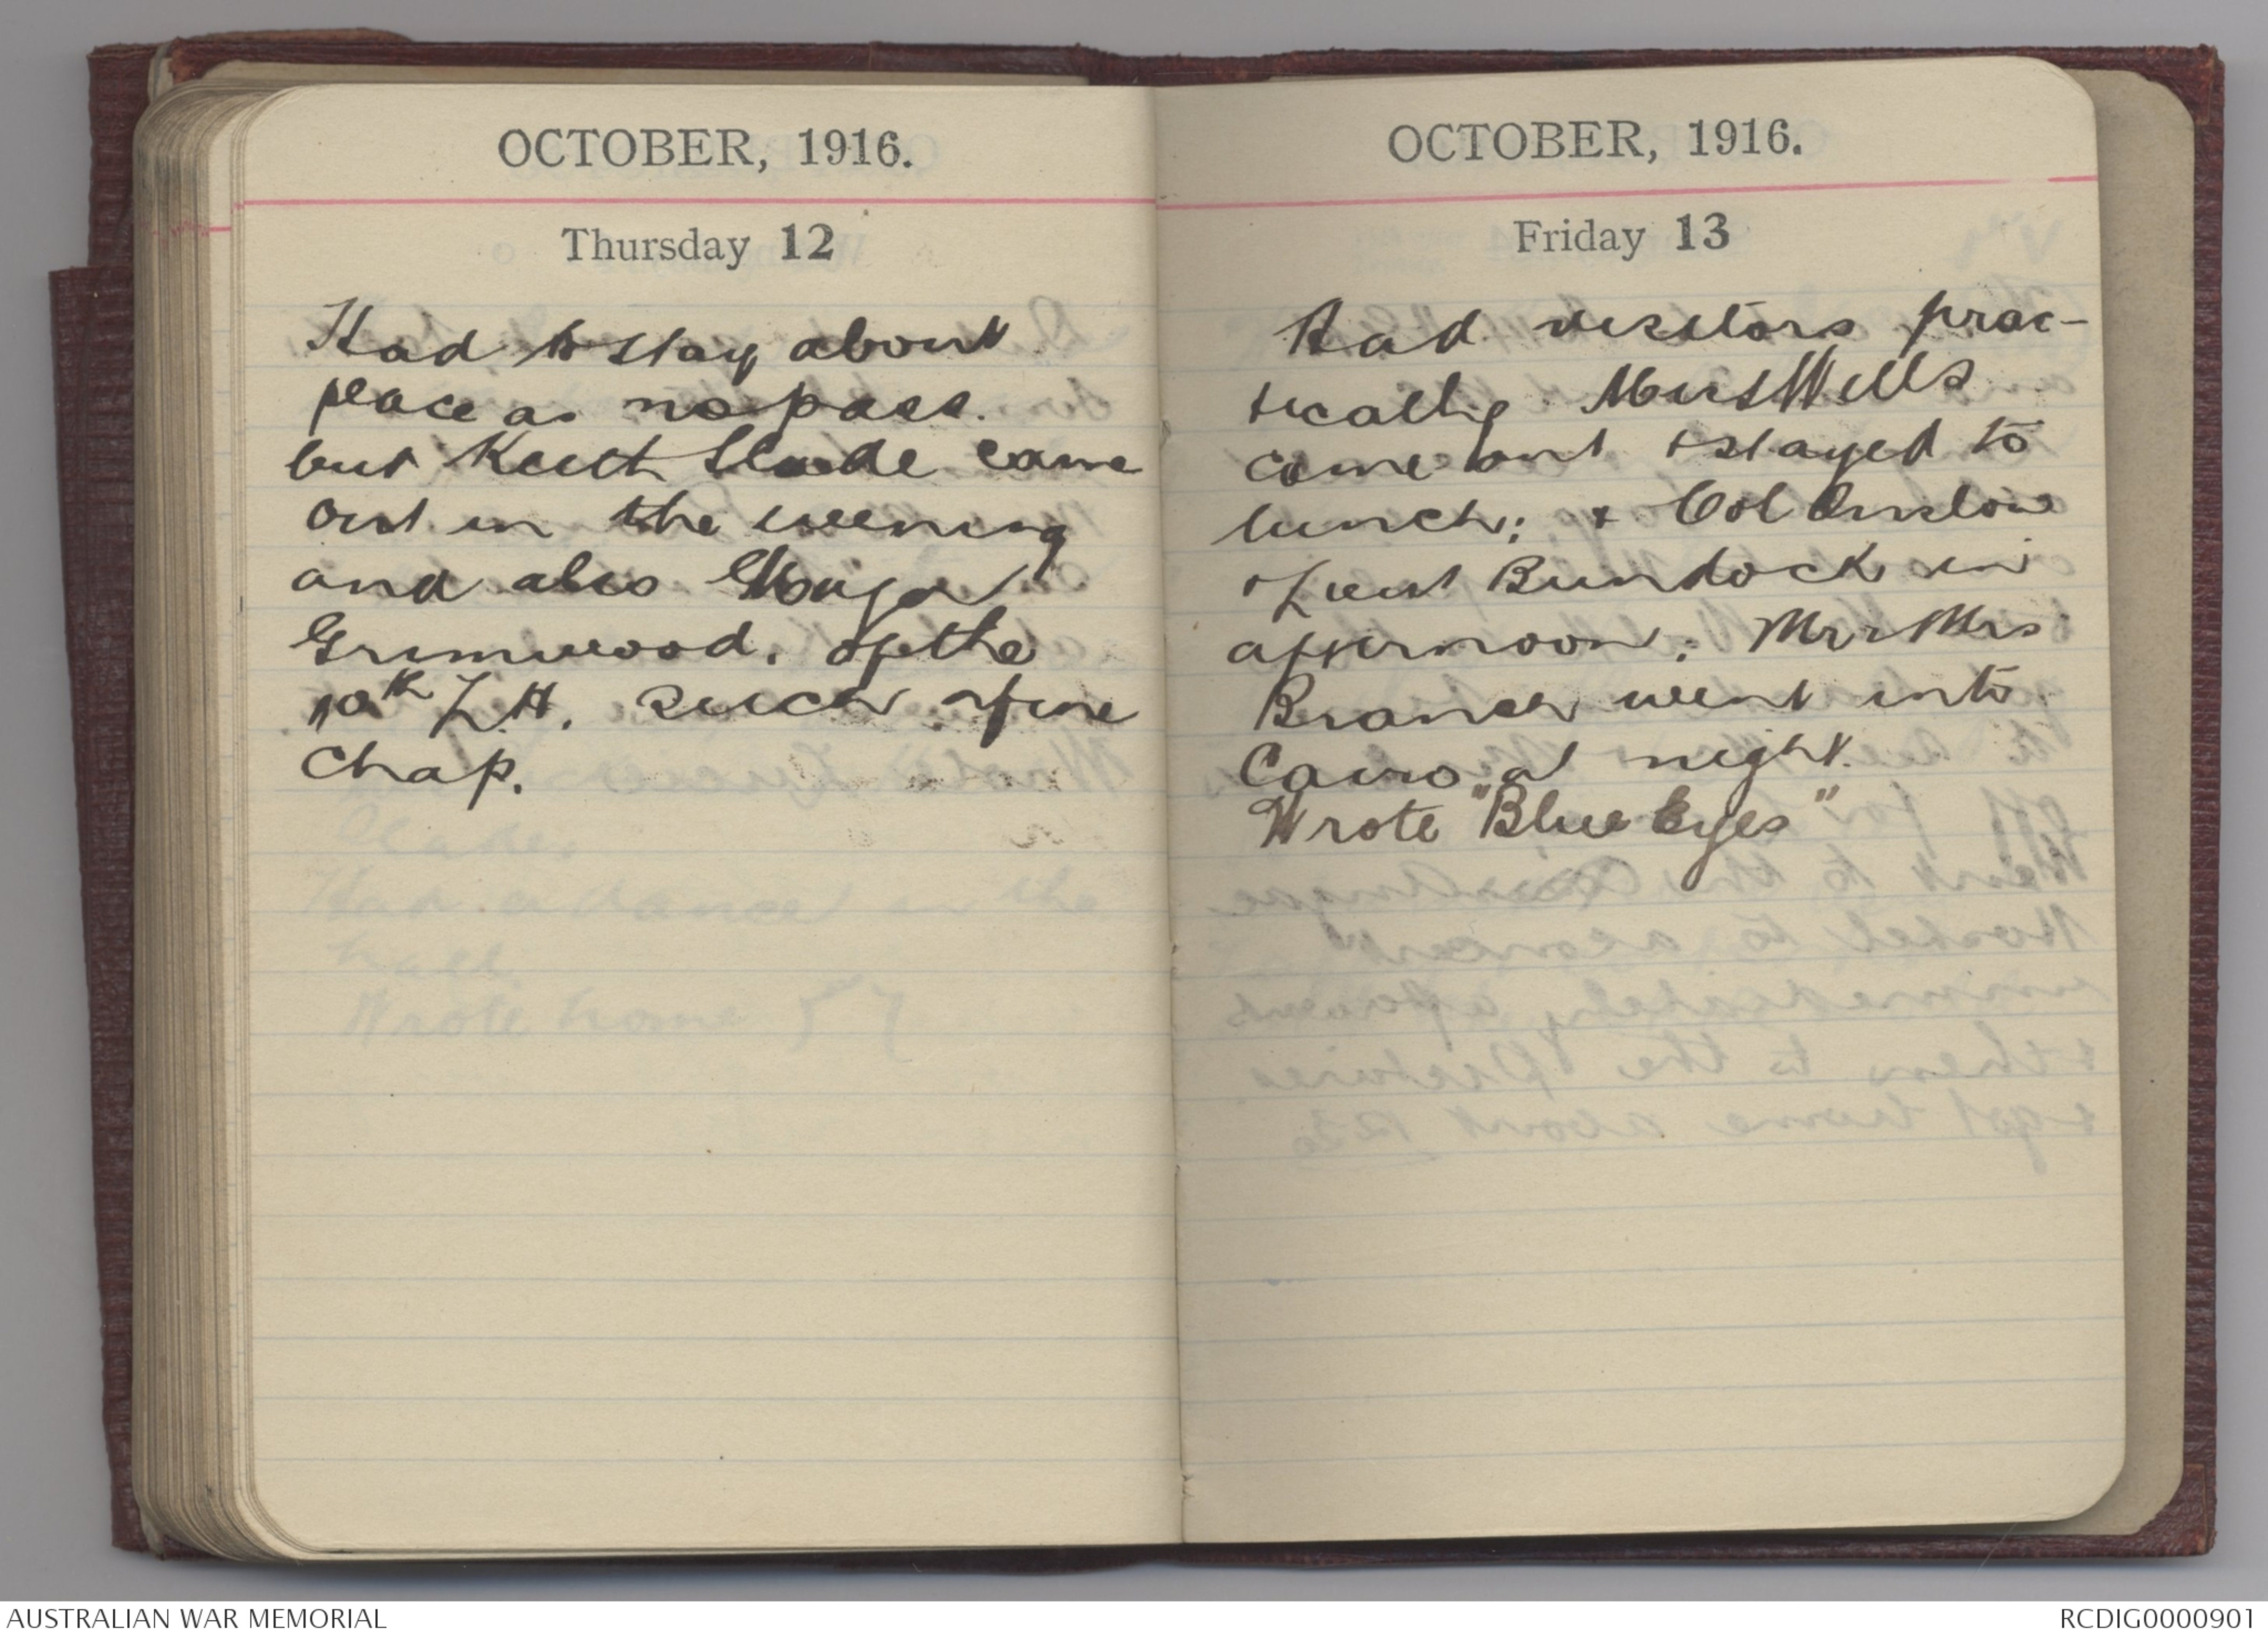 OCTOBER, 1916.
Thursday 12
Had to stay about
place as no pass.
but Keith Slade came
out in the evening
and also Major
Grimwood. of the
10th L.H. such a fine
chap.
OCTOBER, 1916.
Friday 13
Had visitors prac-
tically Wells
came out & stayed to
lunch; & Col Onslow
& Lieut Bundock in
afternoon; Mr & Mrs
Branch went into
Cairo at night.
Wrote "Blue Eyes"
AUSTRALIAN WAR MEMORIAL
RCDIG0000901